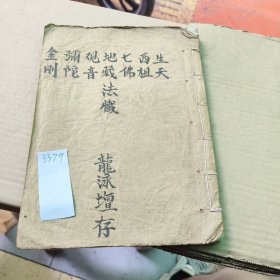 生天
西祖
七佛
地藏
觀音
彌陀
金剛
法藏
龍泳壇存
3379